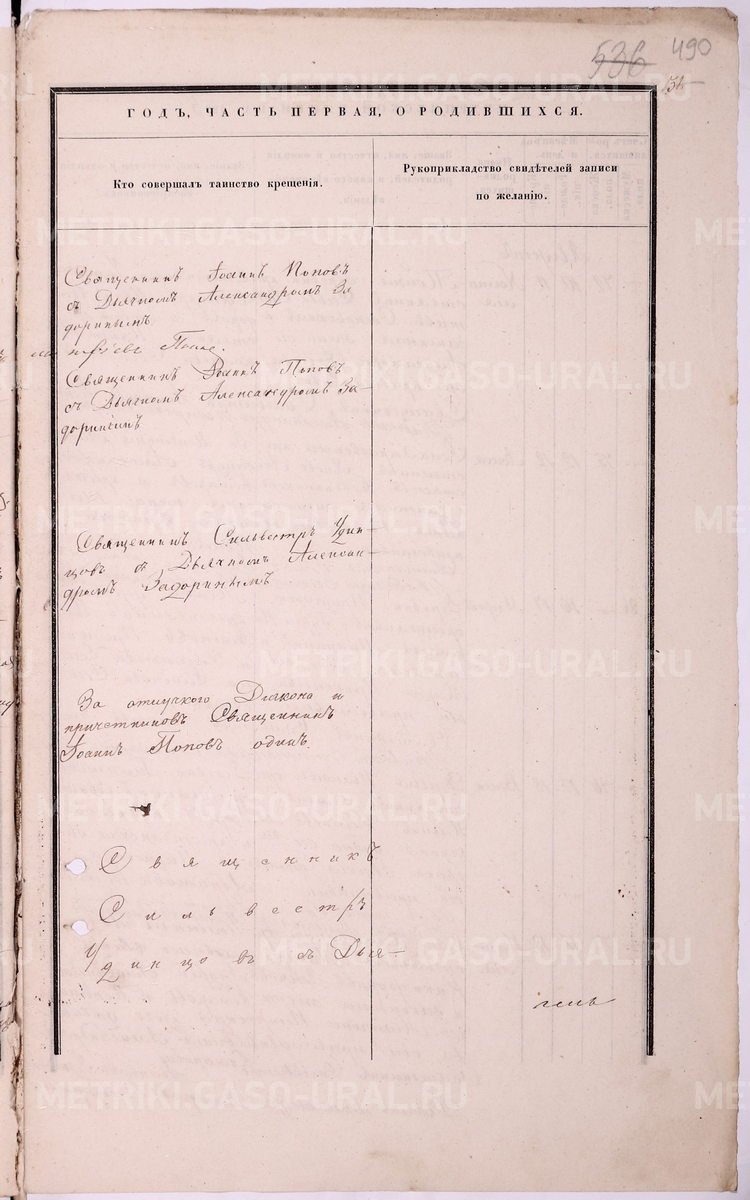 536 490
ГОДЪ, ЧАСТЬ ПЕРВАЯ, О РОДИВШИХСЯ.
Кто совершалъ таинство крещенія.
Рукоприкладство свидѣтелей записи
по желанію.
Священникъ Іоаннъ Поповъ
съ Дьячкомъ Александромъ За
доринымъ
Священникъ Іоаннъ Поповъ
съ Дьячкомъ Александромъ За-
доринымъ
Священникъ Сильвестръ Удин-
цовъ съ Дьячкомъ Алексан-
дромъ Задоринымъ
За отлучкого Діакона и
причетниковъ Священникъ
Іоаннъ Поповъ одинъ.
Священникъ
Сильвестръ
Удинцовъ съ Дья-
METRIKI.GASO-URAL.RU